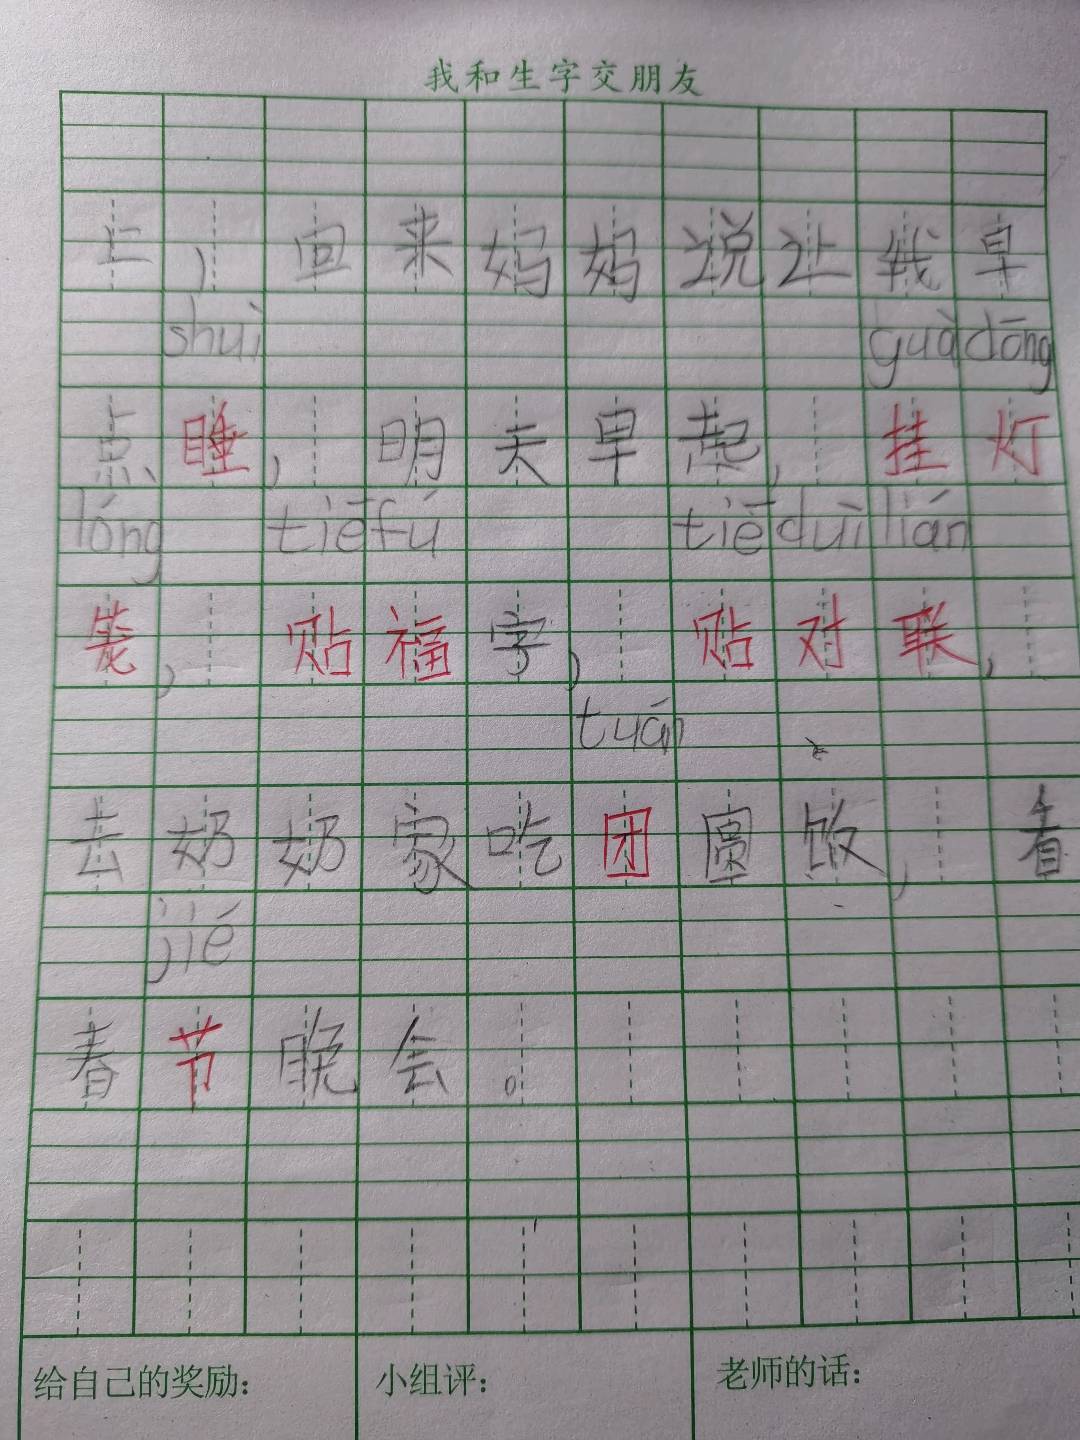 我和生字交朋友
上，回来妈妈说让我早
shuì guà dōng
点睡，明天早起，挂灯
lóng tiē fú tiē duì lián
笼，贴福字，贴对联，
tuán
去奶奶家吃团圆饭，看
jié
春节晚会。
给自己的奖励： 小组评： 老师的话：